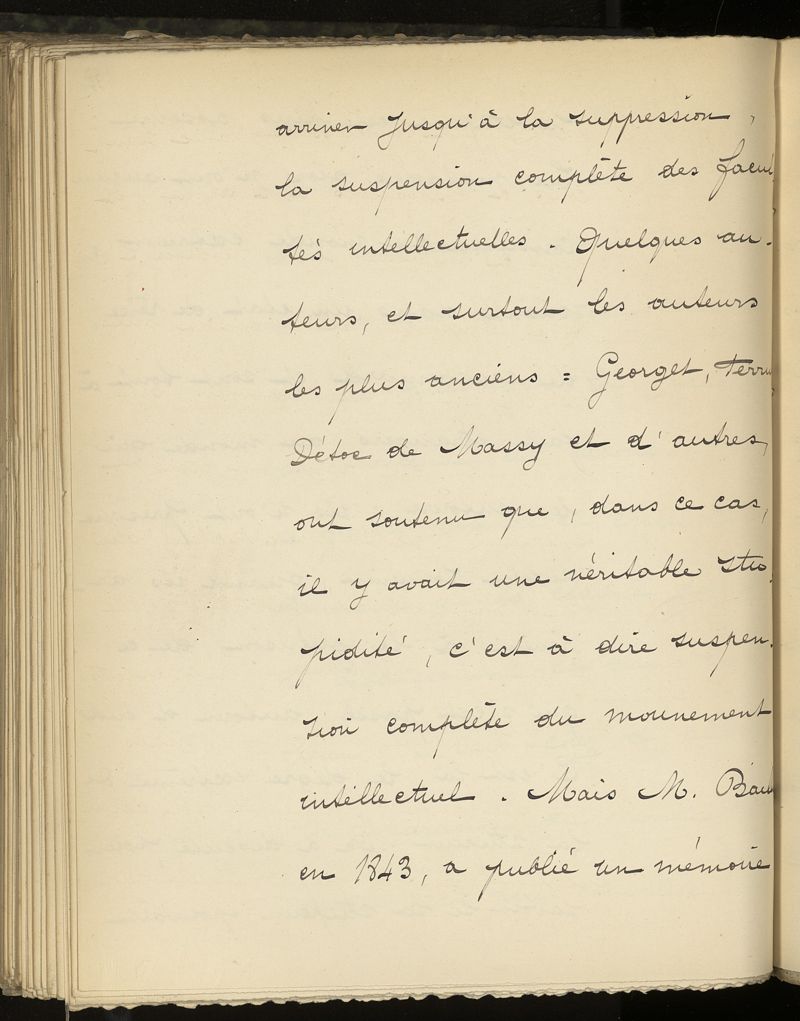 arriver jusqu'à la suppression,
la suspension complète des facul
tés intellectuelles. Quelques au-
teurs, et surtout les auteurs
les plus anciens = Georget,
Détoc de Massy et d'autres,
ont soutenu que, dans ce cas,
il y avait une véritable stu
pidité, c'est à dire suspen-
sion complète du mouvement
intellectuel. Mais M.
en 1843, a publié un mémoire